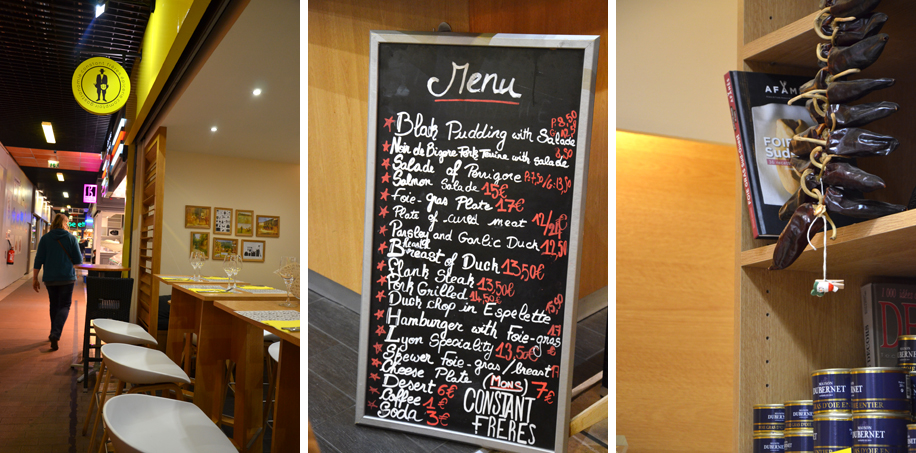 Menu
Black Pudding with Salade P 8,50
Noir de Bigore Pork Terrine with salade 8,50
Salade of Perrigore P 7,50/G: 13,50
Salmon Salade 15€
Foie-gras Plate 17€
Plate of cured meat 12/21€
Parsley and Garlic Duck breast 12,50
Breast of Duck 13,50€
Flank Steak 13,50€
Pork Grilled 14,50€
Duck chop in Espelette
Hamburger with Foie-gras 17€
Lyon Speciality 13,50€
Skewer Foie-gras/breast
Cheese Plate (MONS) 7€
Desert 6€
Coffee 1€
Soda 3€
CONSTANT
FRERES
AFAM
FOI
Sud
MAISON
DUBERNET
D'OIE EN
ENTIER
DUBERNET